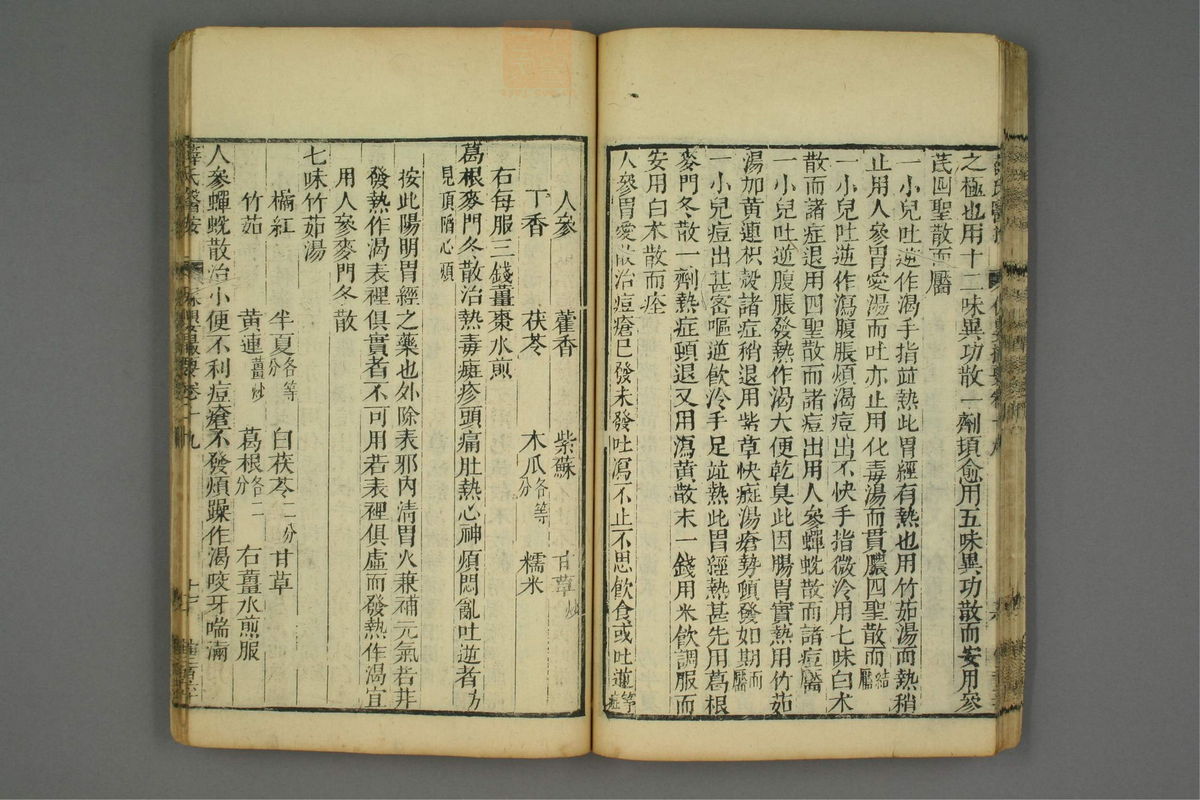 之極也用十二味異功散一劑頓愈用五味異功散而安用參
芪四聖散而靨
一小兒吐逆作渴手指並熱此胃經有熱也用竹茹湯而熱稍
止用人參胃愛湯而吐亦止用化毒湯而貫膿四聖散而結靨
一小兒吐逆作瀉腹脹煩渴痘出不快手指微冷用七味白朮
散而諸症退用四聖散而諸痘出用人參蟬蛻散而諸痘靨
一小兒吐逆腹脹發熱作渴大便乾臭此因腸胃實熱用竹茹
湯加黃連枳殼諸症稍退用紫草快癍湯瘡勢頓發如期而靨
一小兒痘出甚密嘔逆飲冷手足並熱此胃經熱甚先用葛根
麥門冬散一劑熱症頓退又用瀉黃散末一錢用米飲調服而
安用白朮散而痊
人參胃愛散治痘瘡已發未發吐瀉不止不思飲食或吐逆等症
人參 藿香 紫蘇 甘草炒
丁香 茯苓 木瓜各等分 糯米
右每服三錢薑棗水煎
葛根麥門冬散治熱毒癍疹頭痛肚熱心神煩悶亂吐逆者方
見頂陷心煩
按此陽明胃經之藥也外除表邪內清胃火兼補元氣若非
發熱作渴表裡俱實者不可用若表裡俱虛而發熱作渴宜
用人參麥門冬散
七味竹茹湯
橘紅 半夏各等分 白茯苓一分 甘草
竹茹 黃連薑炒 葛根各二分 右薑水煎服
人參蟬蛻散治小便不利痘瘡不發煩躁作渴咬牙喘滿
薛氏醫按 保嬰撮要卷十九